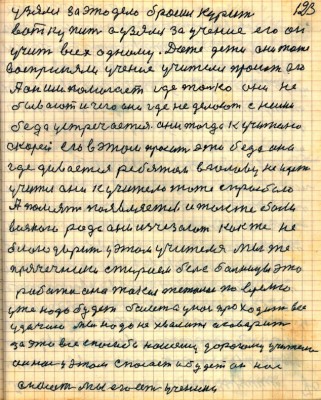 123
узяли за это дело бросили курить
водку пить а узяли за учение его он
учит всех одному. Дети дети они тоже
восприняли учение учителя просят его
А он им помогает где только они не
бывают и чего они где не делают с ними
беда устречается они тогда к учителю
скорей его в этом просят это беда она
где девается ребятам в голову не идет
учитель они к учителю тоже с просьбою
А помят появляется и также боли
всякого рода они изчезают как же не
благодарить у этом учителя мы же
прячечники стираем бель больницы это
работа она такая тяжелая по время
уже надо будет болеть а у нас проходит все
удачно мы надо не хвалит а говорить
за это все спасибо нашему дорогому учителю
он нас у этом спасает и будет он нас
спасать мы его есть ученики